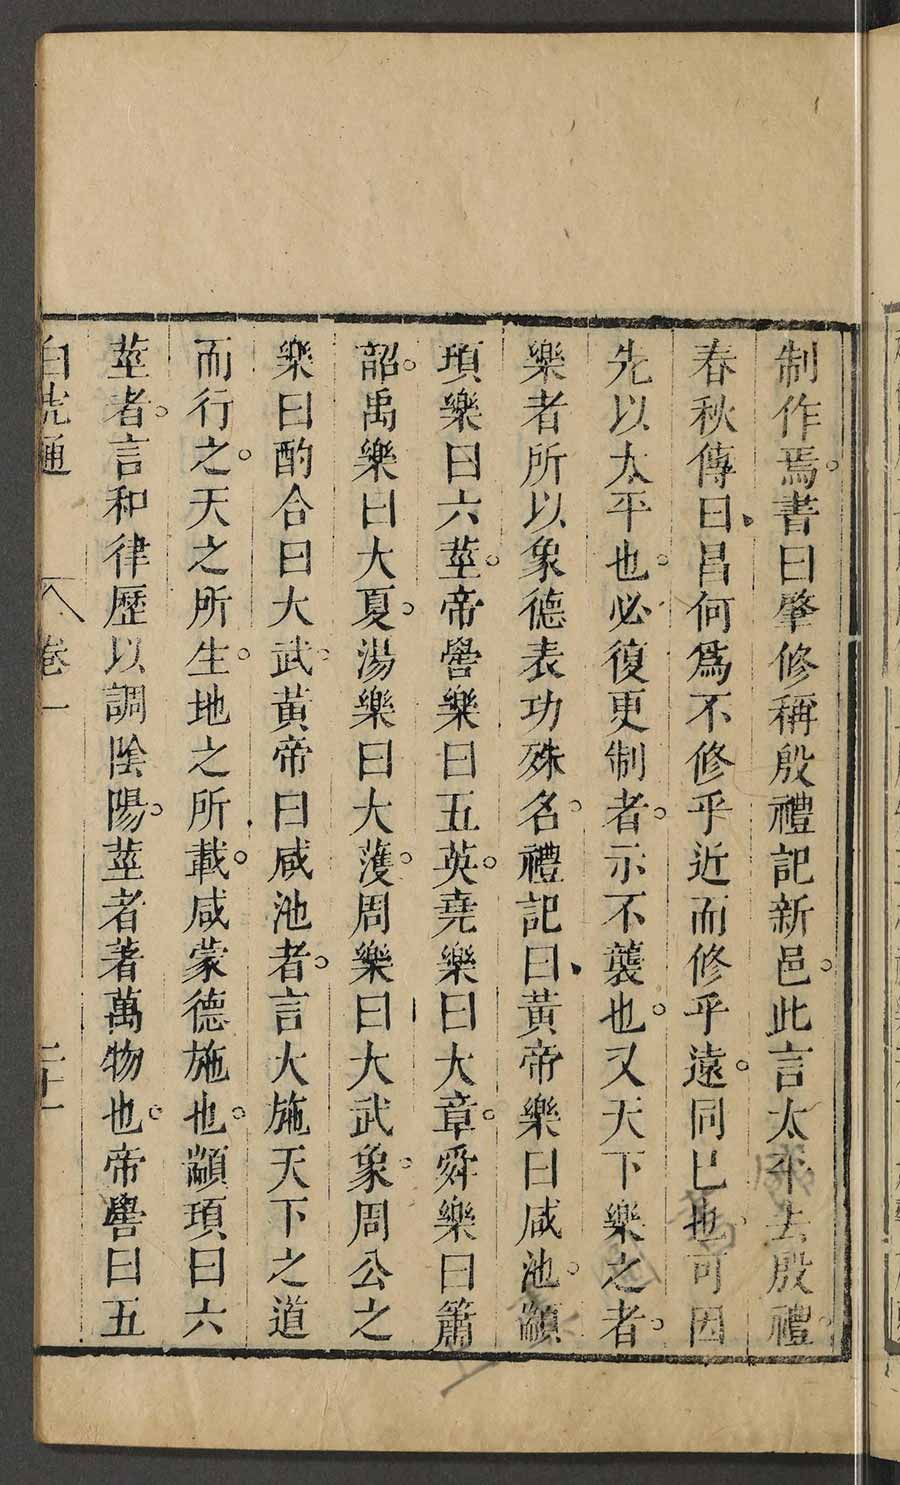 制作焉書曰肇修稱殷禮記新邑此言太平去殷禮
春秋傳曰昌何爲不修乎近而修乎遠同已也可因
先以太平也必復更制者示不襲也又天下樂之者
樂者所以象德表功殊名禮記曰黃帝樂曰咸池顓
頊樂曰六莖帝嚳樂曰五英堯樂曰大章舜樂曰簫
韶禹樂曰大夏湯樂曰大護周樂曰大武象周公之
樂曰酌合曰大武黃帝曰咸池者言大施天下之道
而行之天之所生地之所載咸蒙德施也顓頊曰六
莖者言和律歷以調陰陽莖者著萬物也帝嚳曰五
白虎通 卷一 二十一